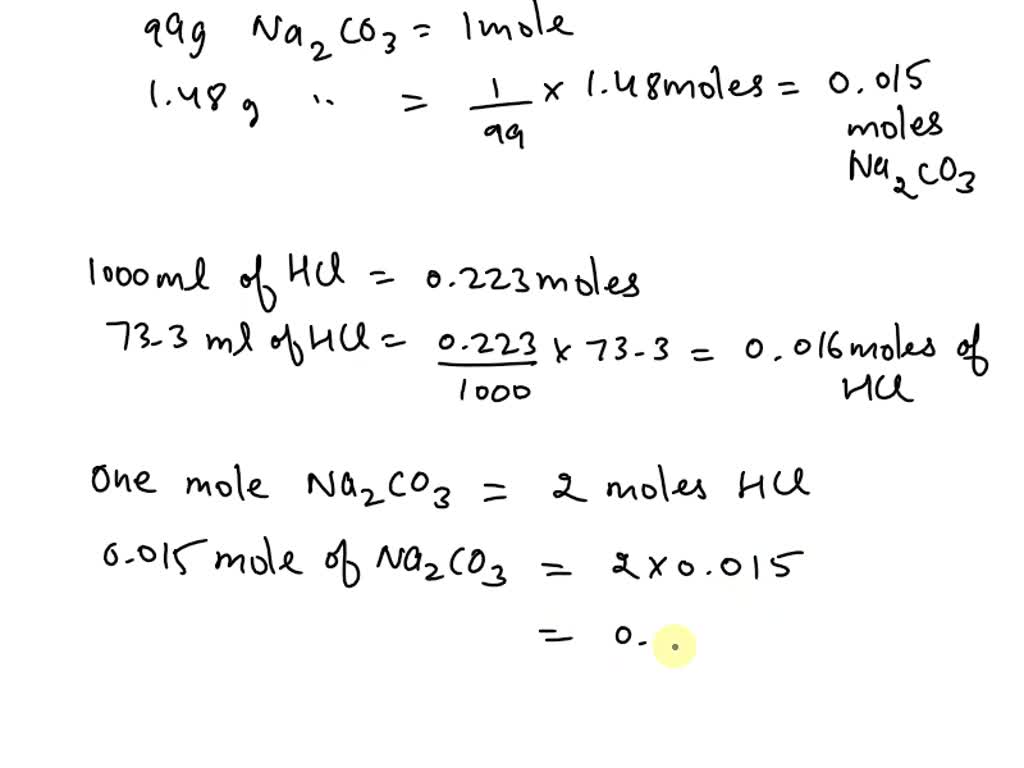 99g Na₂CO₃ = 1mole
1.48g " = 1/99 × 1.48moles = 0.015 moles Na₂CO₃
1000ml of HCl = 0.223moles
73.3 ml of HCl = 0.223/1000 × 73.3 = 0.016moles of HCl
One mole Na₂CO₃ = 2 moles HCl
0.015 mole of Na₂CO₃ = 2×0.015
= 0.